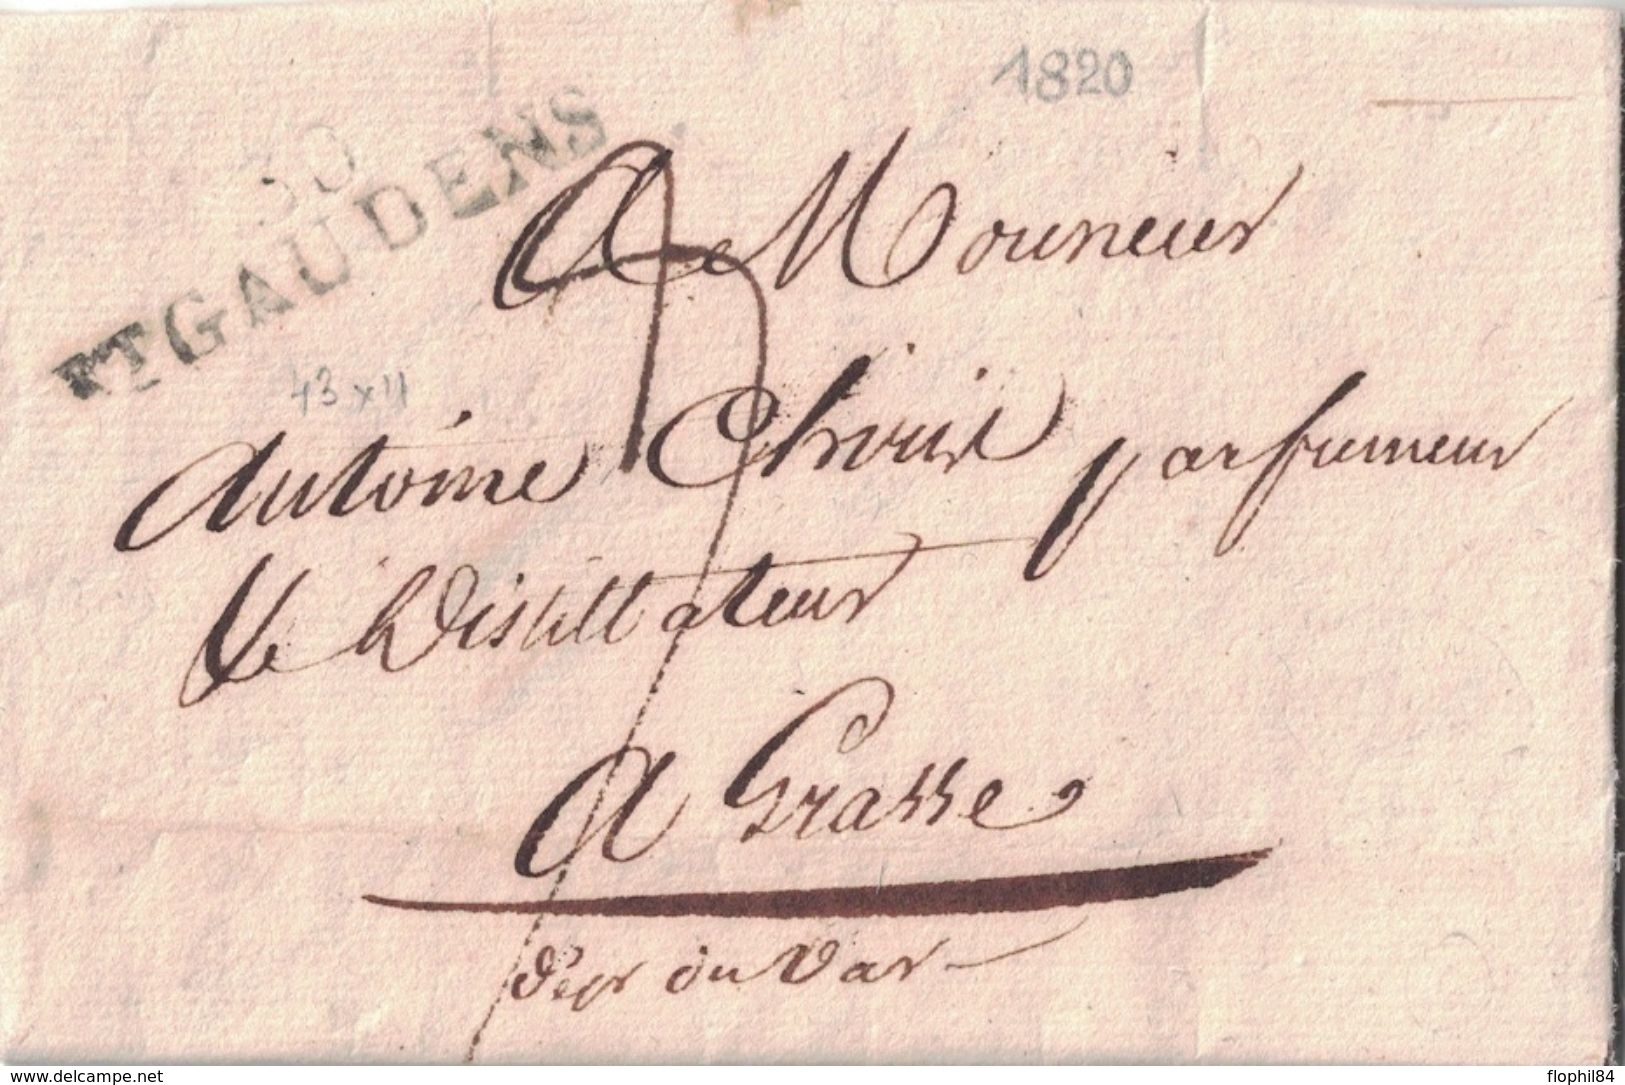 1820
30
ST GAUDENS
43 x 11
A Monsieur
Antoine Chiris parfumeur
& Distillateur
A Grasse
Dep.t du Var
www.delcampe.net
flophil84